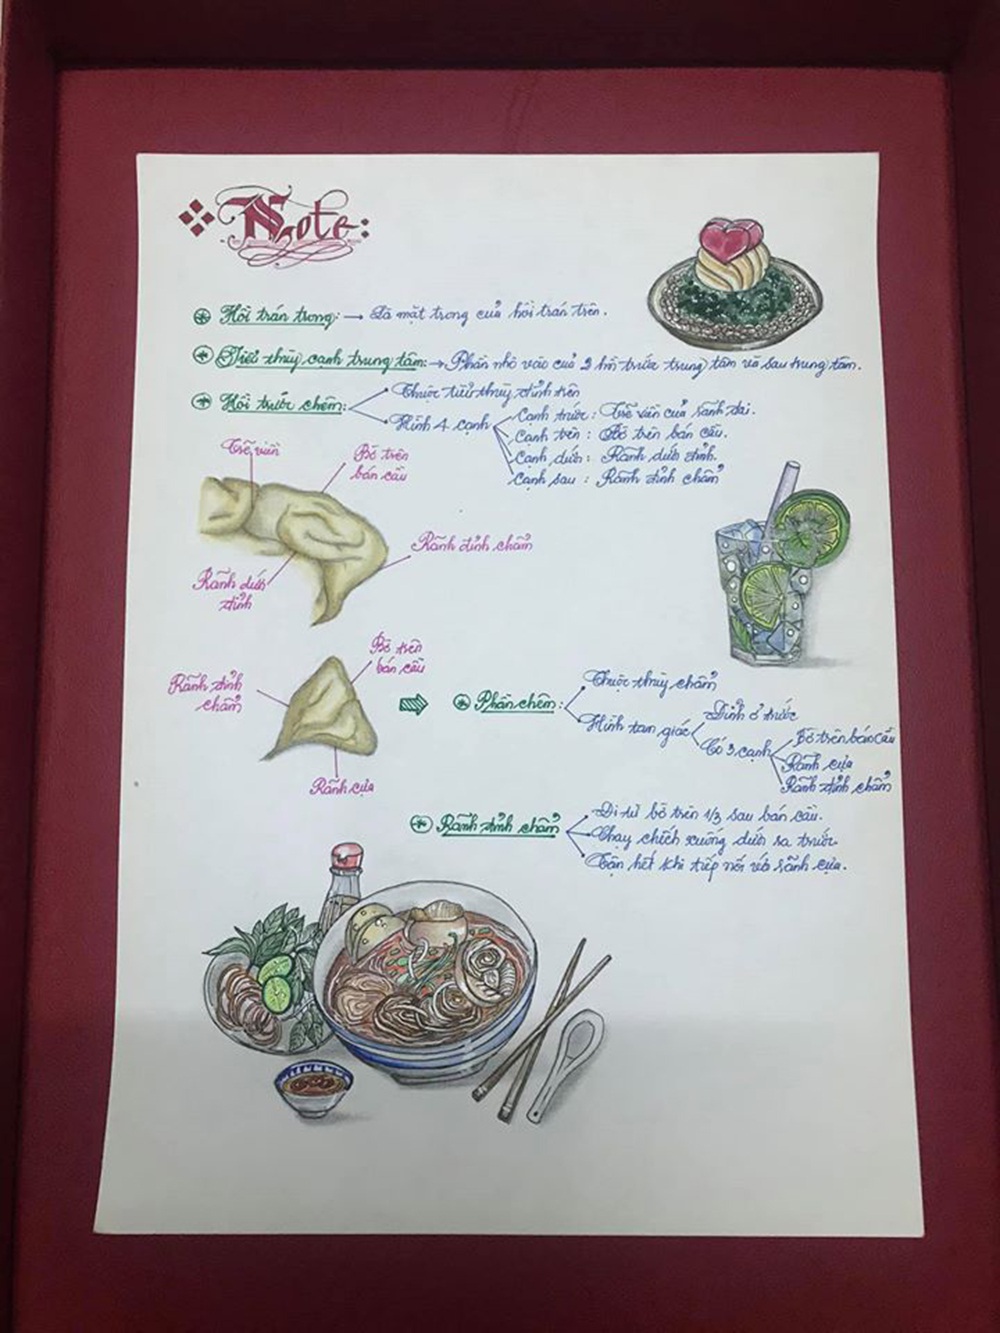 Note:
Hồi trán trong: → Là mặt trong của hồi trán trên.
Tiểu thùy cạnh trung tâm: → Phần nhô vào của 2 hồi trước trung tâm và sau trung tâm.
Hồi trước chêm:
Thuộc tiểu thùy đỉnh trên
Hình 4 cạnh
Cạnh trước: Trẽ viền của rãnh đai.
Cạnh trên: Bờ trên bán cầu.
Cạnh dưới: Rãnh dưới đỉnh.
Cạnh sau: Rãnh đỉnh chẩm
Trẽ viền
Bờ trên
bán cầu
Rãnh đỉnh chẩm
Rãnh dưới
đỉnh
Bờ trên
bán cầu
Rãnh đỉnh
chẩm
Rãnh cựa
Phần chêm:
Thuộc thùy chẩm
Hình tam giác
Đỉnh ở trước
Có 3 cạnh
Bờ trên bán cầu
Rãnh cựa
Rãnh đỉnh chẩm
Rãnh đỉnh chẩm
Đi từ bờ trên 1/3 sau bán cầu.
Chạy chếch xuống dưới ra trước.
Tận hết khi tiếp nối với rãnh cựa.